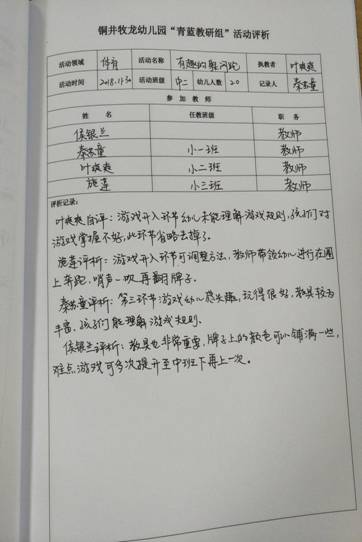 铜井牧龙幼儿园“青蓝教研组”活动评析
活动领域 体育 活动名称 有趣的躲闪跑 执教者 叶爽爽
活动时间 2018.11.30 活动班级 中二 幼儿人数 20 记录人 秦童
参加教师
姓名 任教班级 职务
侯银兰 教师
秦童 小一班 教师
叶爽爽 小二班 教师
施莲 小三班 教师
评析记录:
叶爽爽自评:游戏开入环节幼儿未能理解游戏规则,孩们对
游戏掌握不好,此环节省略去掉了。
施莲评析:游戏开入环节可调整方法,教师带领幼儿进行在圈
上奔跑,哨声一吹再翻牌子。
秦童评析:第三环节游戏幼儿玩得很好,教具较为
丰富,孩子们能理解游戏规则。
侯银兰评析:教具也非常重要,牌子上的颜色可以铺满一些,
难点游戏可多次提升至中班下再上一次。